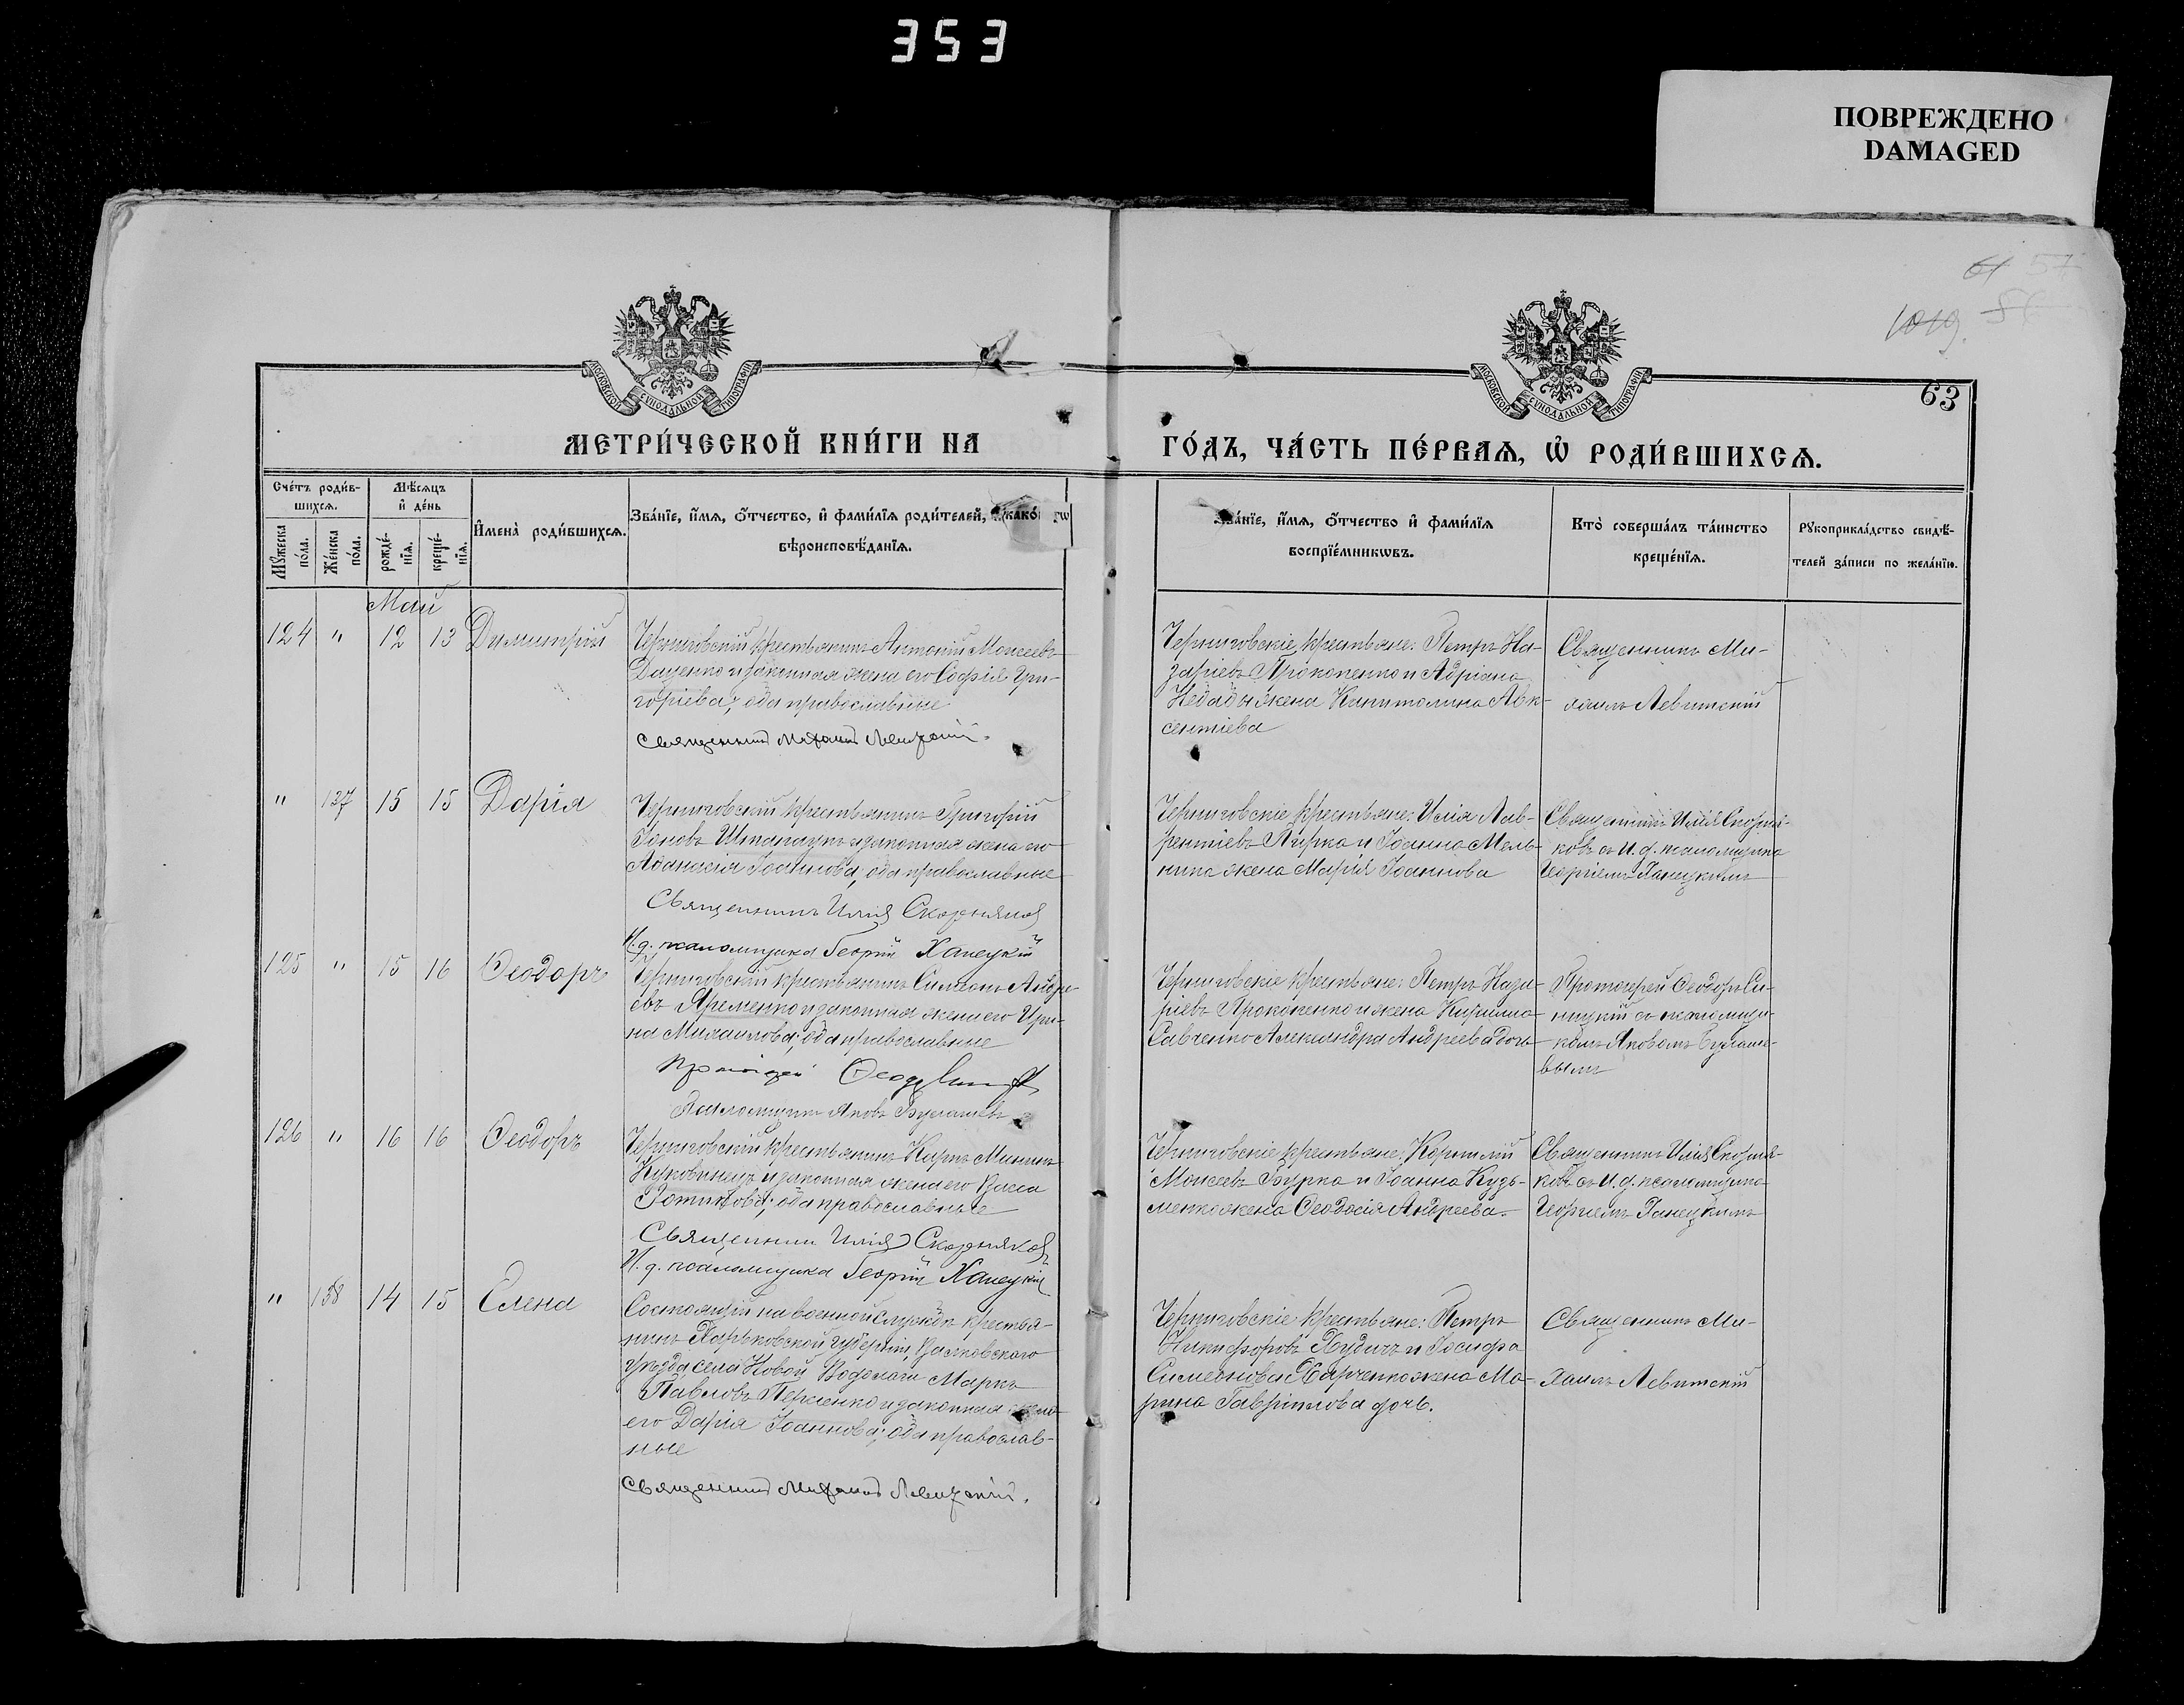 353
ПОВРЕЖДЕНО
DAMAGED
61 57
1019.
63
МОСКОВСКОЙ СѴНОДАЛЬНОЙ ТИПОГРАФІИ
МОСКОВСКОЙ СѴНОДАЛЬНОЙ ТИПОГРАФІИ
МЕТРИ́ЧЕСКОЙ КНИ́ГИ НА
ГО́ДЪ, ЧА́СТЬ ПЕ́РВАѦ, Ѡ҆ РОДИ́ВШИХСѦ.
Сче́тъ роди́в-
шихсѧ.
Мѣ́сѧцъ
и҆ де́нь
Мꙋжеска
по́ла.
Же́нска
по́ла.
рожде́-
нїѧ.
креще́-
нїѧ.
И҆мена̀ роди́вшихсѧ.
Зва́нїе, и҆́мѧ, ѻ҆́тчество, и҆ фами́лїѧ роди́телей, и҆ како́ гѡ
вѣроисповѣ́данїѧ.
Зва́нїе, и҆́мѧ, ѻ҆́тчество и҆ фами́лїѧ
воспрїе́мникѡвъ.
Кто̀ соверша́лъ та́инство
креще́нїѧ.
Рꙋкоприкла́дство свидѣ́-
телей за́писи по жела́нїю.
Май
124 " 12 13 Димитрій
Черниговскій крестьянинъ Антоній Моисеевъ
Даценко и законная жена его Софія Гри-
горіева, оба православные
Священникъ Михаилъ Левитскій.
Черниговскіе крестьяне: Петръ На-
заріевъ Прокопенко и Адріана
Недады жена Капитолина Авк-
сентіева
Священникъ Ми-
хаилъ Левитскій
" 137 15 15 Дарія
Черниговскій крестьянинъ Григорій
Іоновъ и законная жена его
Аѳанасія Іоаннова, оба православные
Священникъ Илія Скорняковъ
И. д. псаломщика Георгій Ханецкій
Черниговскіе крестьяне: Илія Лав-
рентіевъ и Іоанна Мель-
ника жена Марія Іоаннова
Священникъ Илія Скорня-
ковъ съ и. д. псаломщика
Георгіемъ Ганецкимъ
125 " 15 16 Ѳеодоръ
Черниговскій крестьянинъ Симеонъ Андре-
евъ Яременко и законная жена его Ири-
на Михаилова, оба православные
Протоіерей Ѳеодоръ
Псаломщикъ Яковъ
Черниговскіе крестьяне: Петръ Наза-
ріевъ Прокопенко и жена Кирилла
Савченко Александра Андреева дочь
Протоіерей Ѳеодоръ Си-
ницкій съ псаломщи-
комъ Яковомъ
вымъ
126 " 16 16 Ѳеодоръ
Черниговскій крестьянинъ Карпъ Мининъ
и законная жена его Васса
Фотинова, оба православные
Священникъ Илія Скорняковъ
И. д. псаломщика Георгій Ханецкій
Черниговскіе крестьяне: Корнилій
Моисеевъ Бурка и Іоанна Кузь-
менко жена Ѳеодосія Андреева.
Священникъ Илія Скорня-
ковъ съ и. д. псаломщика
Георгіемъ Ганецкимъ
" 138 14 15 Елена
Состоящій на военной службѣ крестья-
нинъ Харьковской губерніи, Валковскаго
уѣзда села Новой Водолаги Маркъ
Павловъ и законная жена
его Дарія Іоаннова, оба православ-
ные
Священникъ Михаилъ Левитскій.
Черниговскіе крестьяне: Петръ
Никифоровъ и Іосифа
Симеонова Харченко жена Ма-
рина Гавріилова дочь.
Священникъ Ми-
хаилъ Левитскій